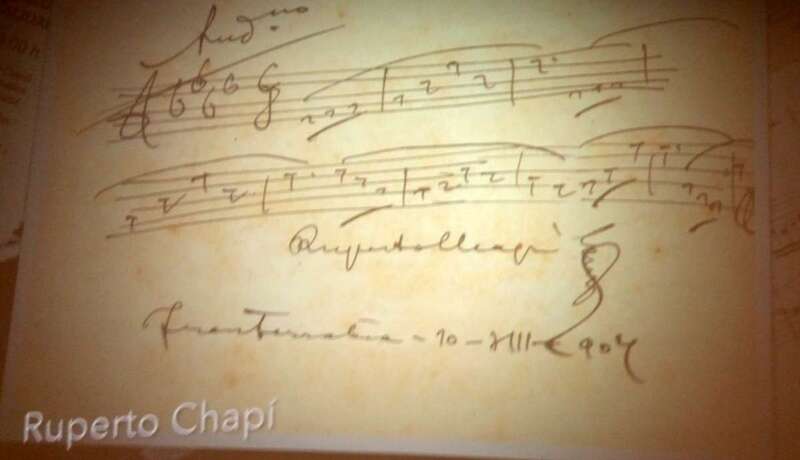 And.no
Ruperto Chapí
Fuenterrabía - 10 - VIII - 907
Ruperto Chapí